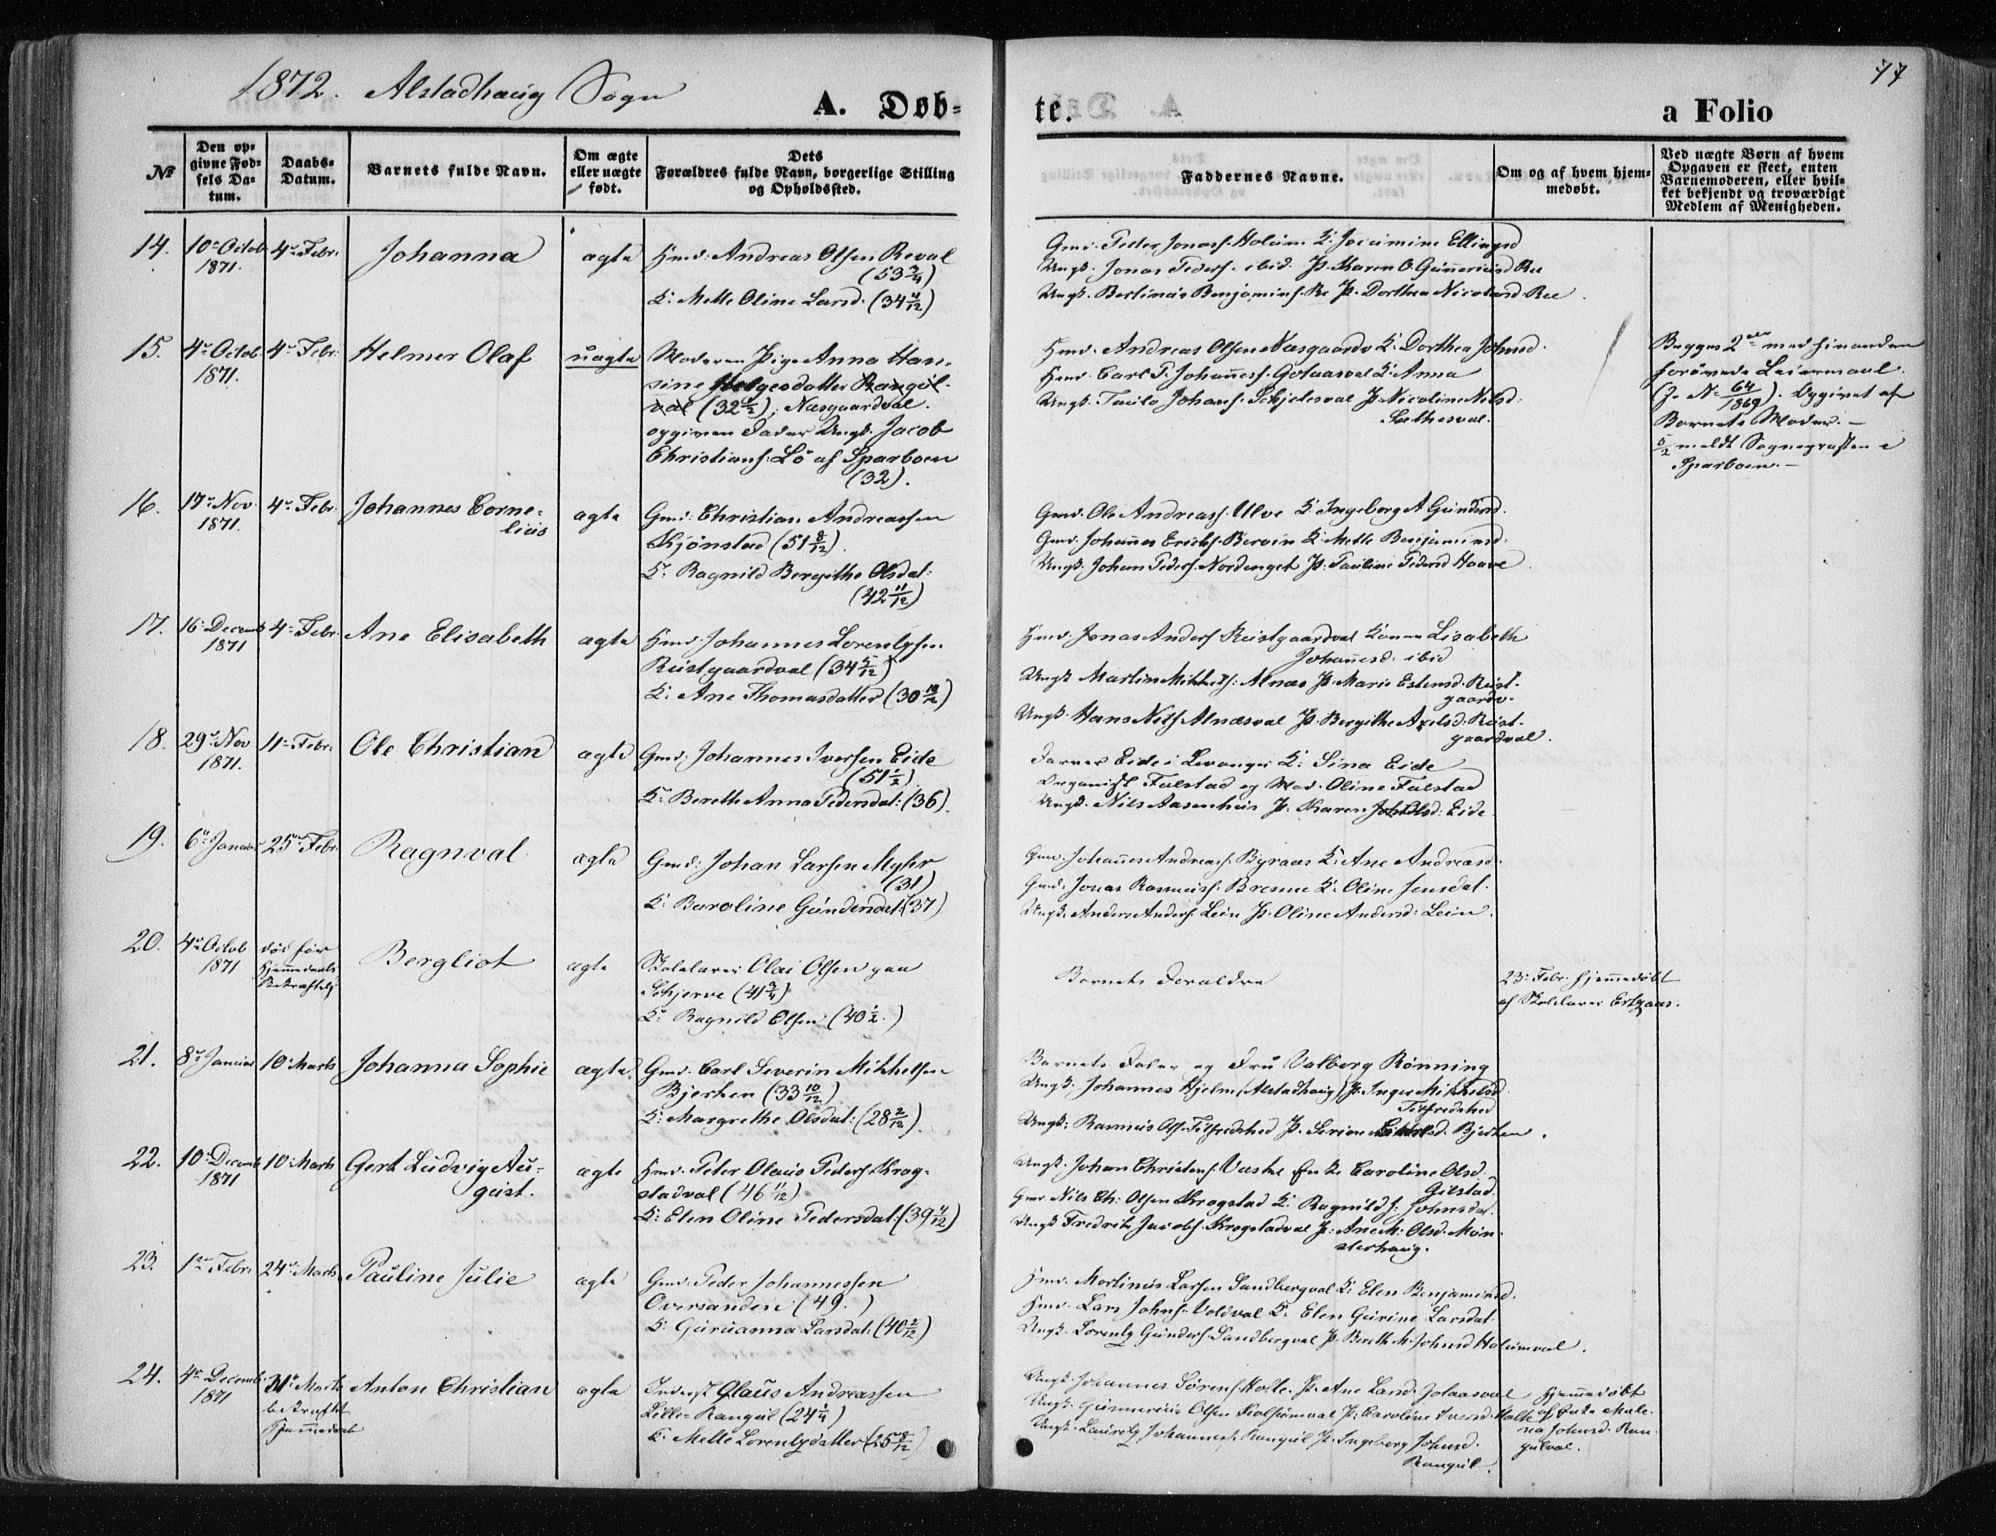 1872. Alstadhaug Sogn
A. Døb-
te.
a Folio
77
№
Den op-
givne Fød-
sels Da-
tum.
Daabs-
Datum.
Barnets fulde Navn.
Om ægte
eller uægte
født.
Dets
Forældres fulde Navn, borgerlige Stilling
og Opholdssted.
Faddernes Navne.
Om og af hvem hjem-
medøbt.
Ved uægte Børn af hvem
Opgaven er skeet, enten
Barnemoderen, eller hvil-
ket bekjendt og troværdigt
Medlem af Menigheden.
14. 10de Octob 1871. 4de Febr. Johanna ægte
Hmd. Andreas Olsen Reval
(53 3/4)
K: Mette Oline Larsd. (34 4/12)
Gmd. Peder Jonass. Holum K. Jocumine Ellingsd
Ungk. Jonas Peders. ibid. P. Karen O. Gunneriusd Ree
Ungk. Bertinus Benjamins. Re P. Dorthea Nicolaisd Ree
15. 4de Octob 1871. 4de Febr. Helmer Olaf uægte
Moderen Pige Anna Han-
sine Helgesdatter Rangul-
val (32 1/2), Næsgaardval.
opgiven Fader Ungk. Jacob
Christians. Lø af Sparboen
(32).
Hmd. Andreas Olsen Næsgaardv K. Dorthea Johnsd.
Hmd. Carl P. Johaness. Golaasval K. Anna
Ungk. Paulo Johans. Schjelsval P. Nicoline Nilsd.
Salthesval.
Begges 2den med hinanden
forøvede Leiermaal.
(J. No 64/1869). Opgivet af
Barnets Moder. -
5/2 meldt Sognepræsten i
Sparboen. -
16. 17de Nov 1871. 4de Febr. Johannes Corne-
lius ægte
Gmd. Christian Andreassen
Kjønstad (51 8/12).
K. Ragnild Bergithe Olsdat:
(42 11/12)
Gmd. Ole Andreass. Ulve K. Ingeborg A Gundersd.
Gmd. Johannes Ericks. Bervin K. Mette Benjaminsd.
Ungk. Johan Peders. Nordenget P. Pauline Pedersd Haave
17. 16de Decemb 1871 4de Febr. Ane Elisabeth ægte
Hmd. Johannes Lorentzsen
Reistgaardval (34 5/12)
K. Ane Thomasdatter (30 10/12)
Hmd. Jonas Anders. Reistgaardval Konen Lisabeth
Johanesd. ibid
Ungk Martin Mikkels. Alnæs P. Marie Estensd. Reist-
gaardv.
Ungk. Hans Nels Alnæsval P. Bergithe Axelsd. Reist-
gaardval.
18. 29de Nov 1871. 11te Febr. Ole Christian ægte
Gmd. Johannes Iversen Eide
(51 1/2)
K. Bereth Anna Pedersdat: (36).
Farver Eide i Levanger K. Sina Eide
Organist Falstad og Mad. Oline Falstad
Ungk. Nils Aasenhuis P. Karen Eide
19. 6te Januar 25de Febr. Ragnval ægte
Gmd: Johan Larsen Myhr
(31)
K. Baroline Gundersdat: (37)
Gmd. Johannes Andreass. Byraas K. Ane Andreasd.
Gmd. Jonas Rasmuss. Brenne K. Oline Jensdat.
Ungk. Anders Anders. Lein P. Oline Andersd. Lein.
20. 4de Octob 1871 død før
Hjemmedaabs
Bekræftelse Bergliot ægte
Skolelærer Olai Olsen paa
Schjerve (41 3/4)
K. Ragnild Olsen (40 1/2.)
Barnets Forældre
23de Febr. hjemmedøbt
af Skolelærer Ertzaas.
21. 8de Januar 10de Marts Johanna Sophie ægte
Gmd. Carl Severin Mikkelsen
Bjerken (33 10/12)
K. Margrethe Olsdat: (28 2/12).
Barnets Fader og Fru Valborg Rønning
Ungk. Johannes Hjelm (Alstadhaug) P. Inger Mikkelsd.
Tilfredshed
Ungk: Rasmus Ols. Tilfredshed P. Serine Bjerken.
22. 10de Decemb 1871 10de Marts Gert Ludvig Au-
gust. ægte
Hmd. Peter Olaus Peders. Krog-
stadval (46 11/12)
K: Elen Oline Pedersdat: (39 4/12)
Ungk. Johan Christens. Enke Caroline Olsd.
Gilstad.
Gmd. Nils Ch. Olsen Krogstad K. Ragnild J. Johnsdat.
Ungk Fredrik Jacobs. Krogstadval P. Ane M. Olsd. Mun-
sterhaug.
23. 1ste Febr. 24de Marts Pauline Julie ægte
Gmd. Peder Johannessen
Oversanden (49.)
K. Guruanna Larsdat: (40 2/12)
Hmd. Martinus Larsen Sandbergval K. Elen Benjaminsd.
Hmd. Lars Johns. Voldval K. Elen Gurine Larsdat.
Ungk. Lorentz Gunders. Sandbergval P. Bereth M. Johnsd Holumval.
24. 4de Decemb. 1871 31te Marts
bekræftet
Hjemmedaab Anton Christian ægte
Inderst Olaus Andreassen
Lille-Rangul (24 1/4)
K. Mette Lorentzdatter (25 8/12)
Ungk. Johannes Sørens. Holte. P. Ane Land. Jolaasval
Ungk. Gunnerius Olsen Kolsumval P. Caroline Iversd. Holte
Ungk. Lauritz Johanness. Rangul P. Ingeborg Johnsd.
Rangul.
Hjemmedøbt
af Enke Male-
na Johnsd. Ran-
gulval.